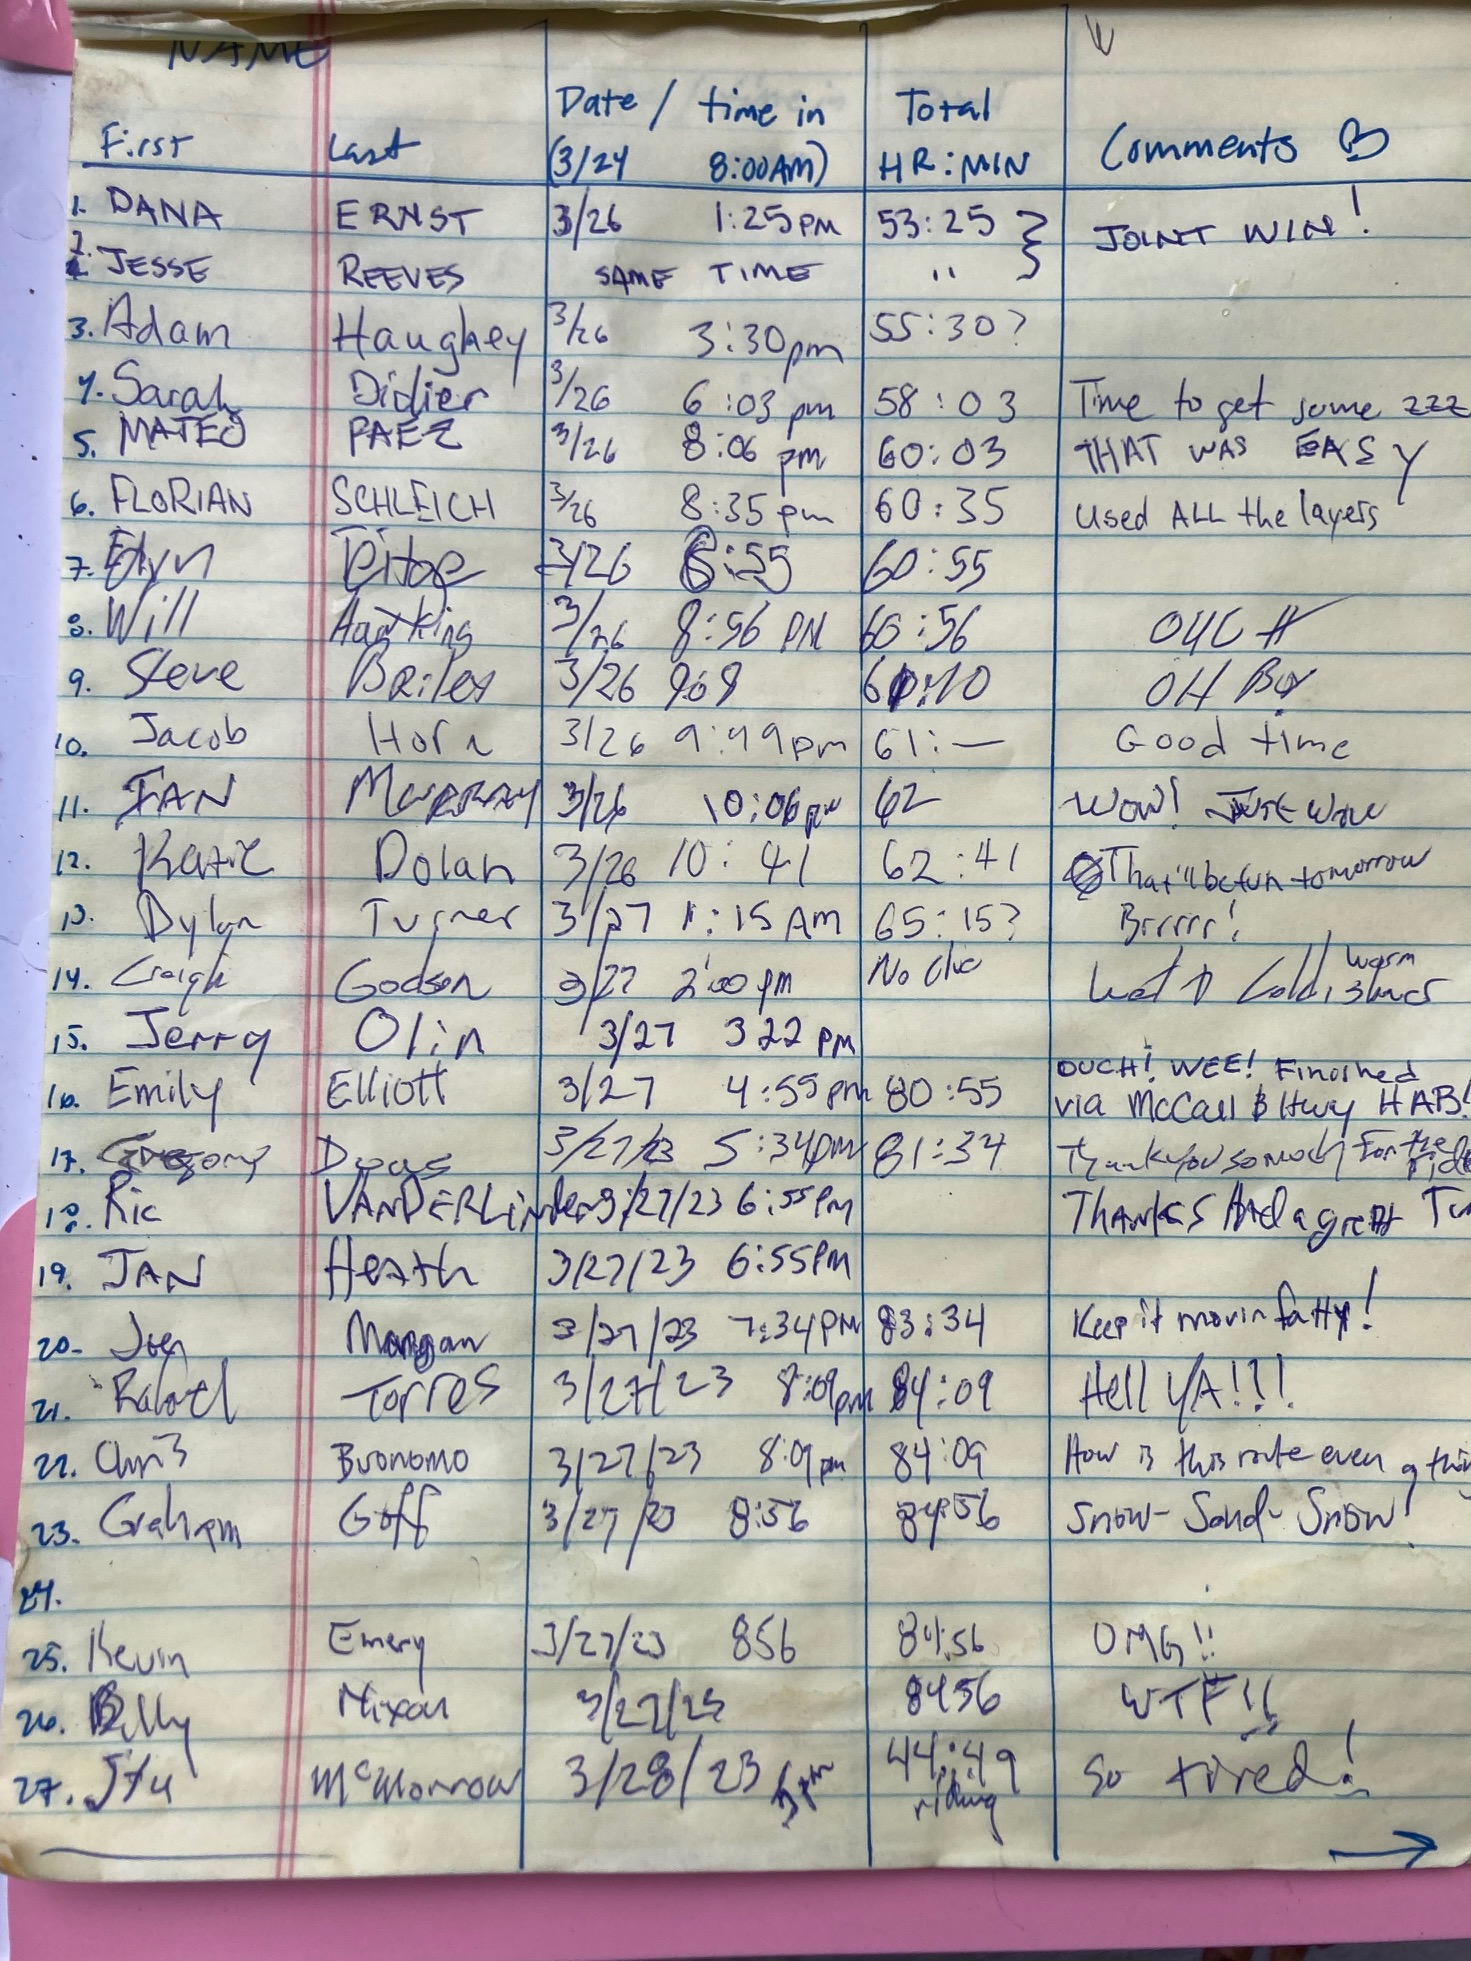 NAME
Date / time in Total
First Last (3/24 8:00AM) HR:MIN Comments
1. DANA ERNST 3/26 1:25pm 53:25 } JOINT WIN!
2. JESSE REEVES SAME TIME " }
3. Adam Haughey 3/26 3:30pm 55:30?
4. Sarah Didier 3/26 6:03 pm 58:03 Time to get some zzz
5. MATEO PAEZ 3/26 8:06 pm 60:03 THAT WAS EASY
6. FLORIAN SCHLEICH 3/26 8:35 pm 60:35 used ALL the layers
7. 3/26 8:55 60:55
8. Will 3/26 8:56 PM 60:56 OUCH
9. Steve Briley 3/26 OH BOY
10. Jacob Horn 3/26 9:49pm 61:— Good time
11. IAN Murray 3/26 10:06pm 62 WOW! JUST WOW
12. Katie Dolan 3/26 10:41 62:41 That'll be fun tomorrow
13. Dylan Turner 3/27 1:15 AM 65:15? Brrrrr!
14. Craigh Godson 3/27 2:00 pm No Clue Cold, warm
15. Jerry Olin 3/27 322 PM
OUCH! WEE! Finished
16. Emily Elliott 3/27 4:55pm 80:55 via McCall & Hwy HAB!
17. Gregory 3/27/23 5:34pm 81:34 Thank you so much For the ride
18. Ric VANDERLinden 3/27/23 6:55Pm Thanks Had a great
19. JAN Heath 3/27/23 6:55PM
20. Joey Mangan 3/27/23 7:34PM 83:34 Keep it movin fatty!
21. Rafael Torres 3/27/23 8:09pm 84:09 Hell YA!?!
22. Chris Buonomo 3/27/23 8:09pm 84:09 How is this route even a
23. Graham Goff 3/27/23 8:56 84:56 Snow - Sand - Snow!
24.
25. Kevin Emery 3/27/23 856 84:56 OMG!!
26. Billy Nixon 3/27/23 8456 WTF!!
27. Stu McMorrow 3/28/23 44:49 So tired!
riding